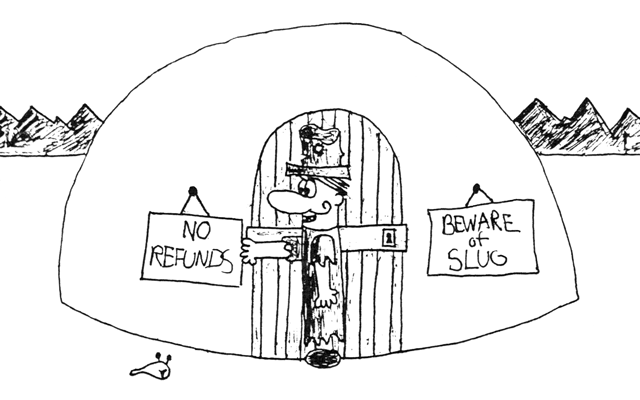 NO
REFUNDS
BEWARE
of
SLUG